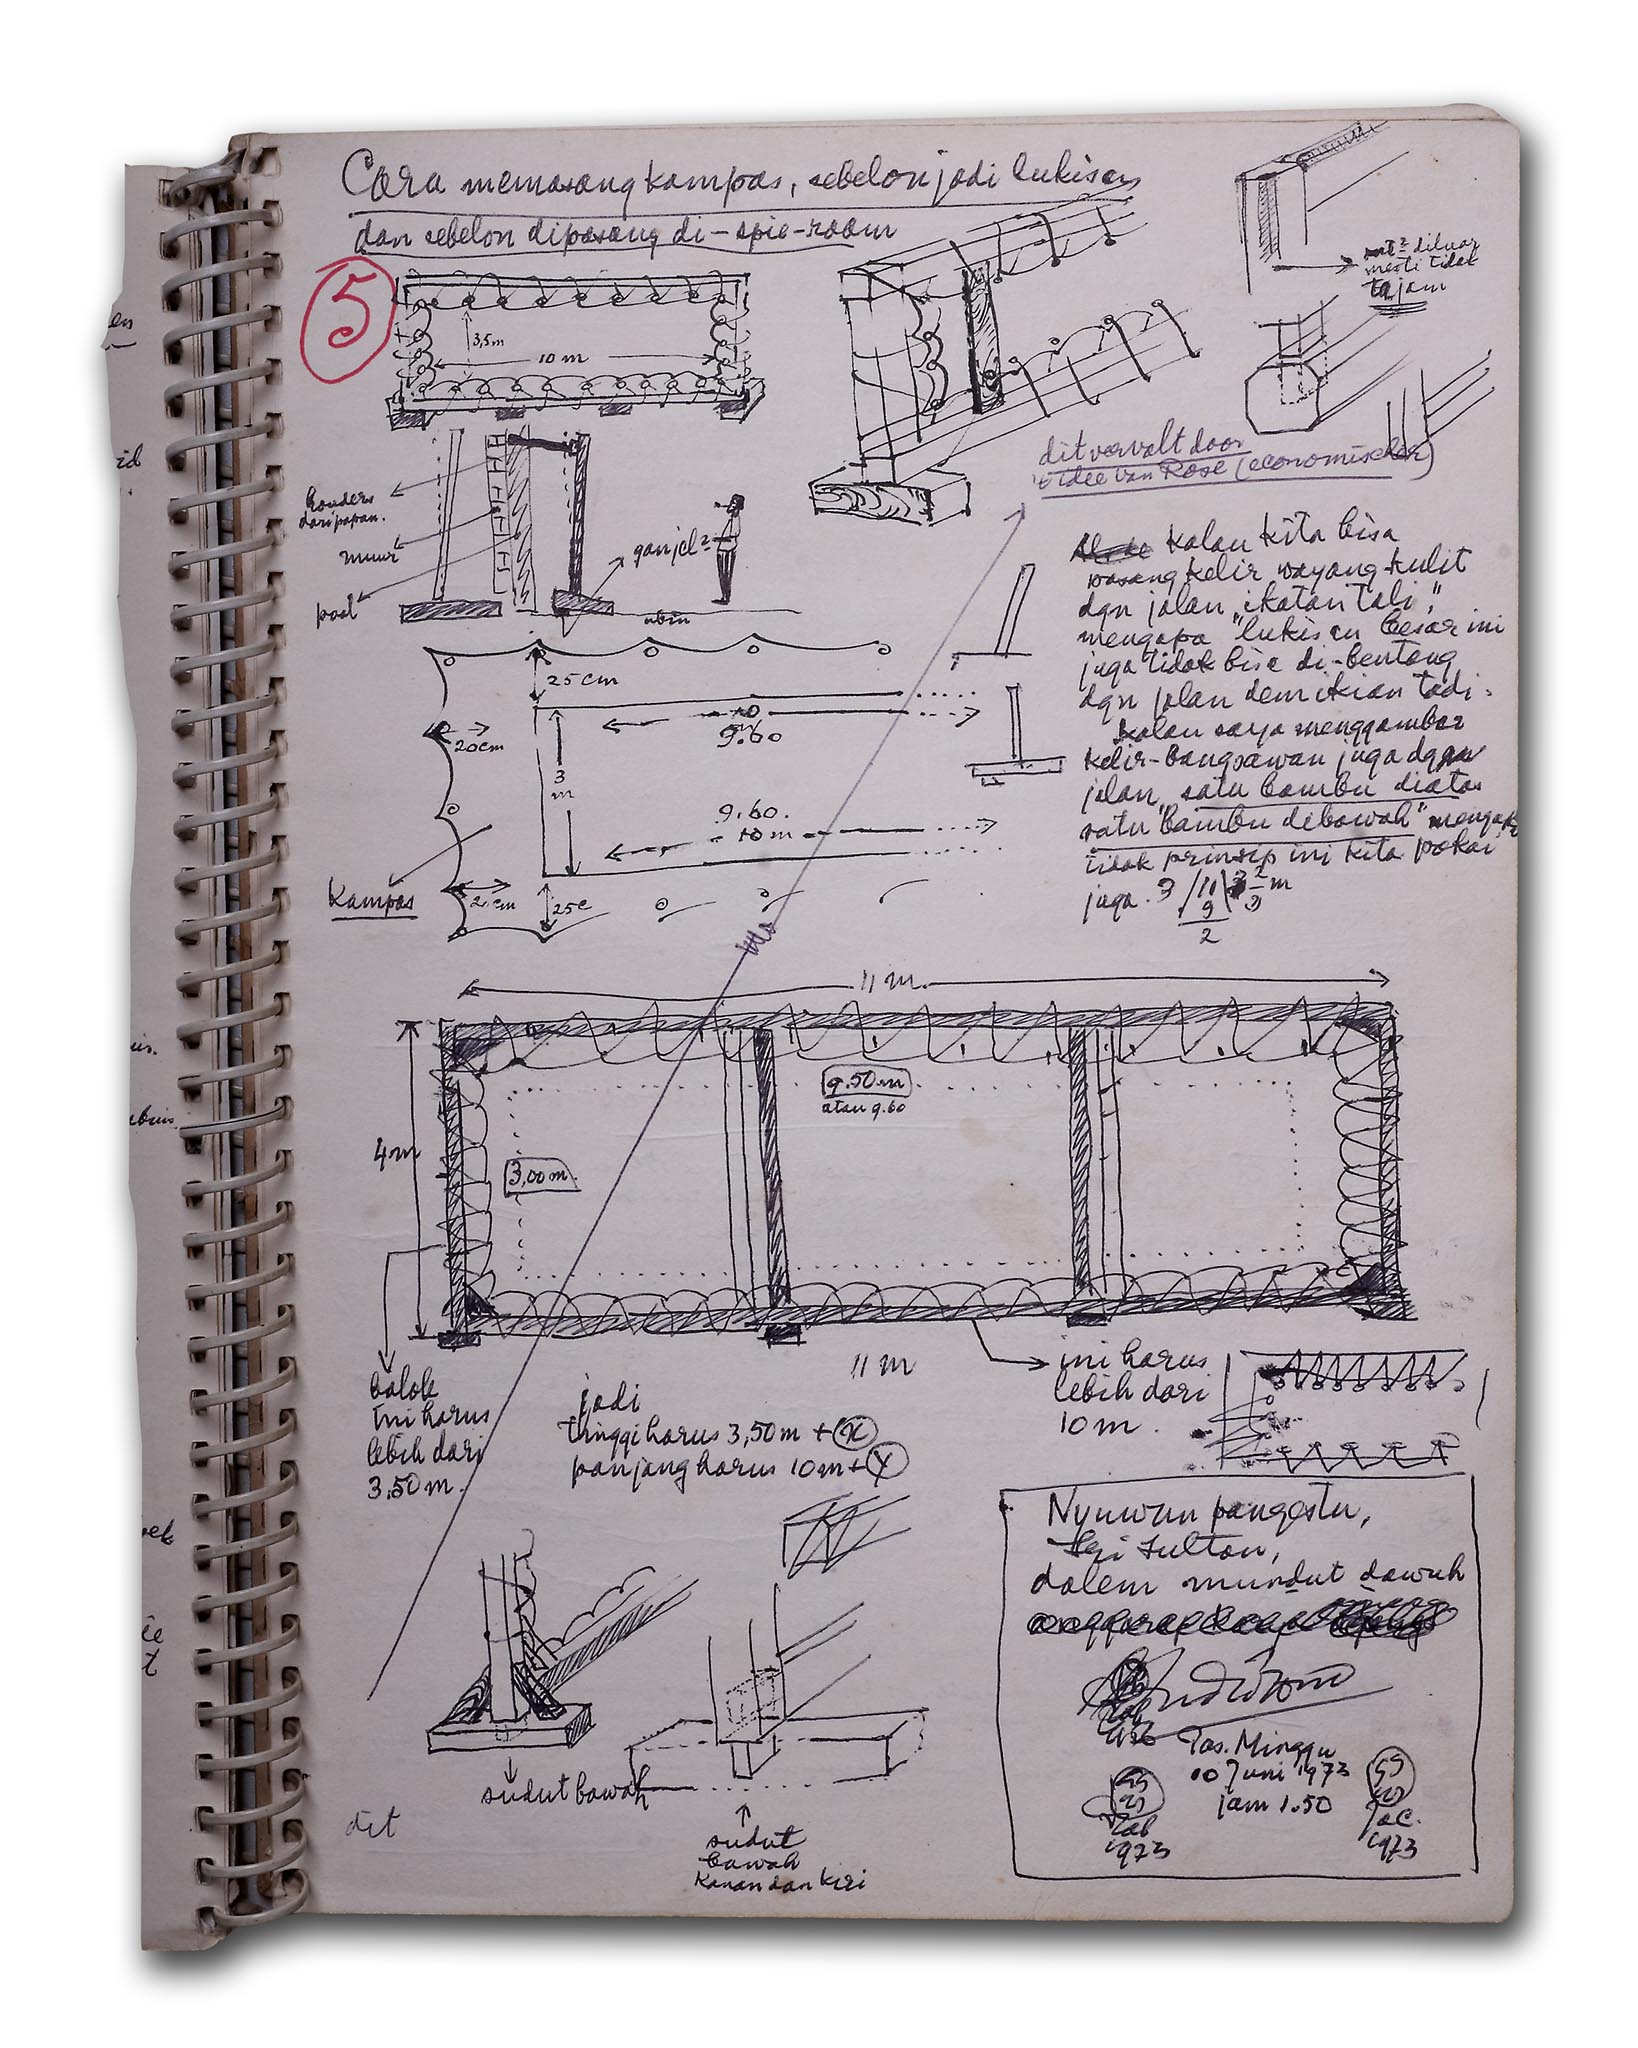 Cara memasang kampas, sebelon jadi lukisan
dan sebelon dipasang di-spie-raam
5
3,5m
10 m
diluar
mesti tidak
tajam
dit vervalt door
idee van Rose (economischer)
houders
dari papan.
muur
paal
ganjel²
ubin
kalau kita bisa
masang kelir wayang-kulit
dgn jalan "ikatan tali,"
mengapa "lukisan besar ini
juga tidak bisa di-bentang
dgn jalan demikian tadi.
kalau saya menggambar
kelir-bangsawan juga dgn
jalan "satu bambu diatas
satu bambu dibawah" mengapa
tidak prinsip ini kita pakai
juga. 3 / 11 \ 3 2/3 m
9
2
25 cm
20 cm
10 m
9.60
3
m
9.60.
10 m
Kampas
25c
11 m.
4m
9.50m
atau 9.60
3,00m.
11 m
balok
ini harus
lebih dari
3,50m.
jadi
tinggi harus 3,50m + x
panjang harus 10m + y
ini harus
lebih dari
10m.
sudut bawah
sudut
bawah
kanan dan kiri
dit
Nyuwun pangestu,
Sultan,
dalem mundut dawuh
Pas. Minggu
10 Juni 1973
jam 1.50
1973
1973